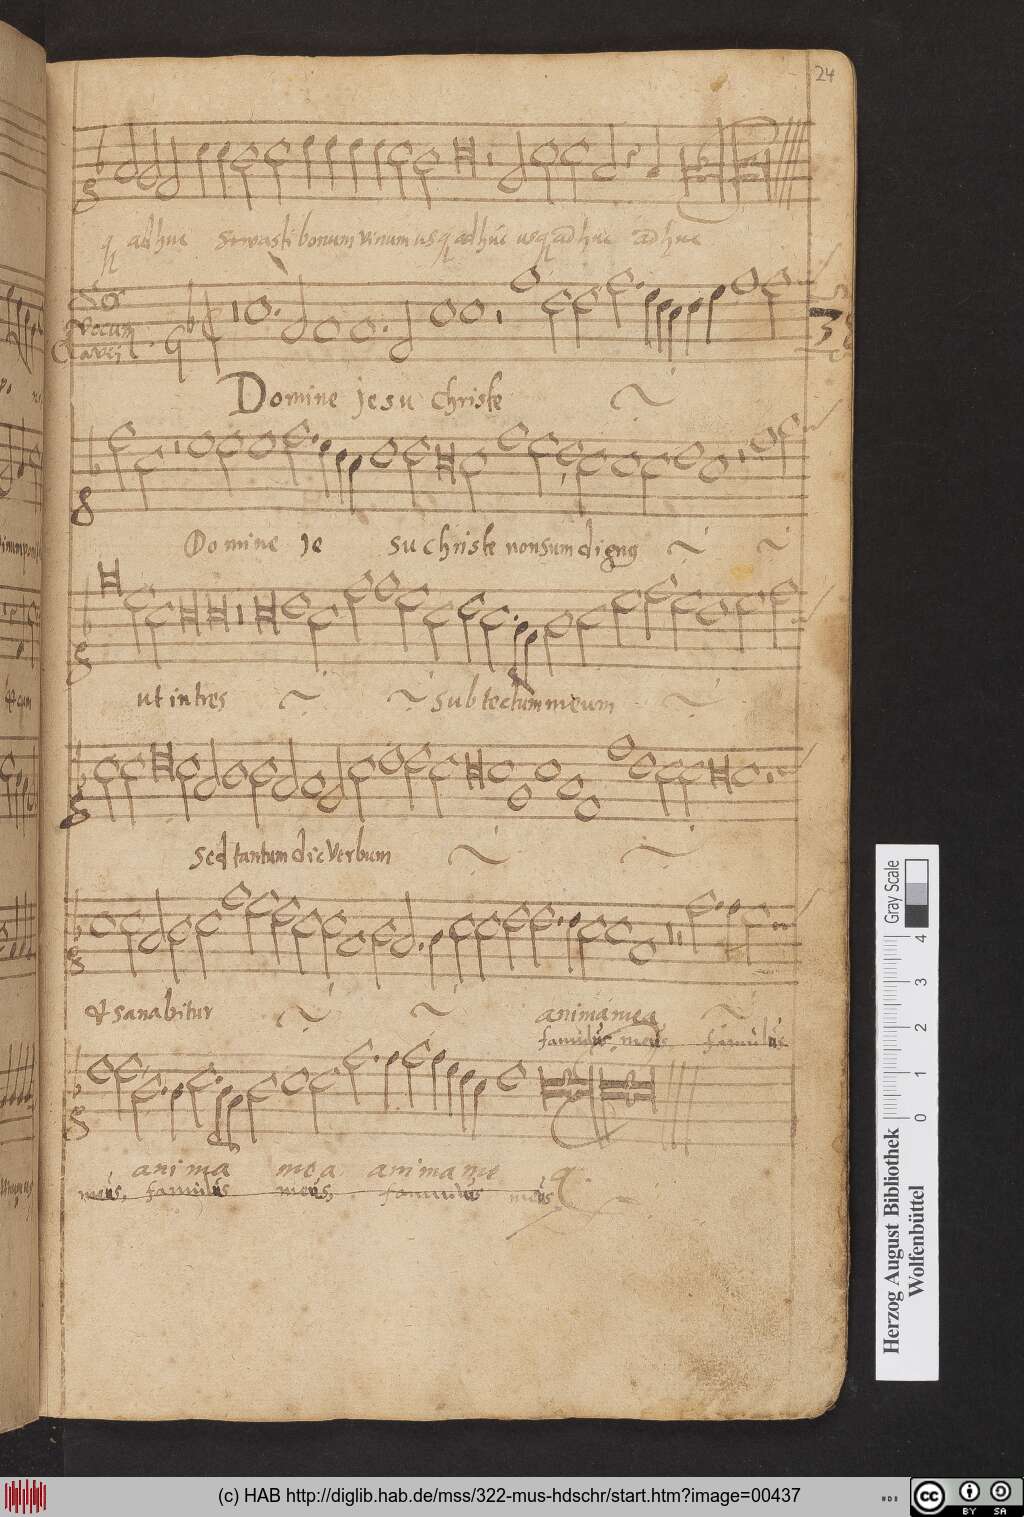 24
q adhue servasti bonum vinum usq adhuc usq adhuc adhue
So
Vocum
Domine Jesu Christe
Domine Je su christe non sum dignq
ut intres sub tectum meum
Sed tantum dic verbum
& sanabitur anima mea
famulus meus famulus
anima mea anima me
meus, famulus meus, famulus meus
Gray Scale
0 1 2 3 4
Herzog August Bibliothek
Wolfenbüttel
(c) HAB http://diglib.hab.de/mss/322-mus-hdschr/start.htm?image=00437
cc BY SA